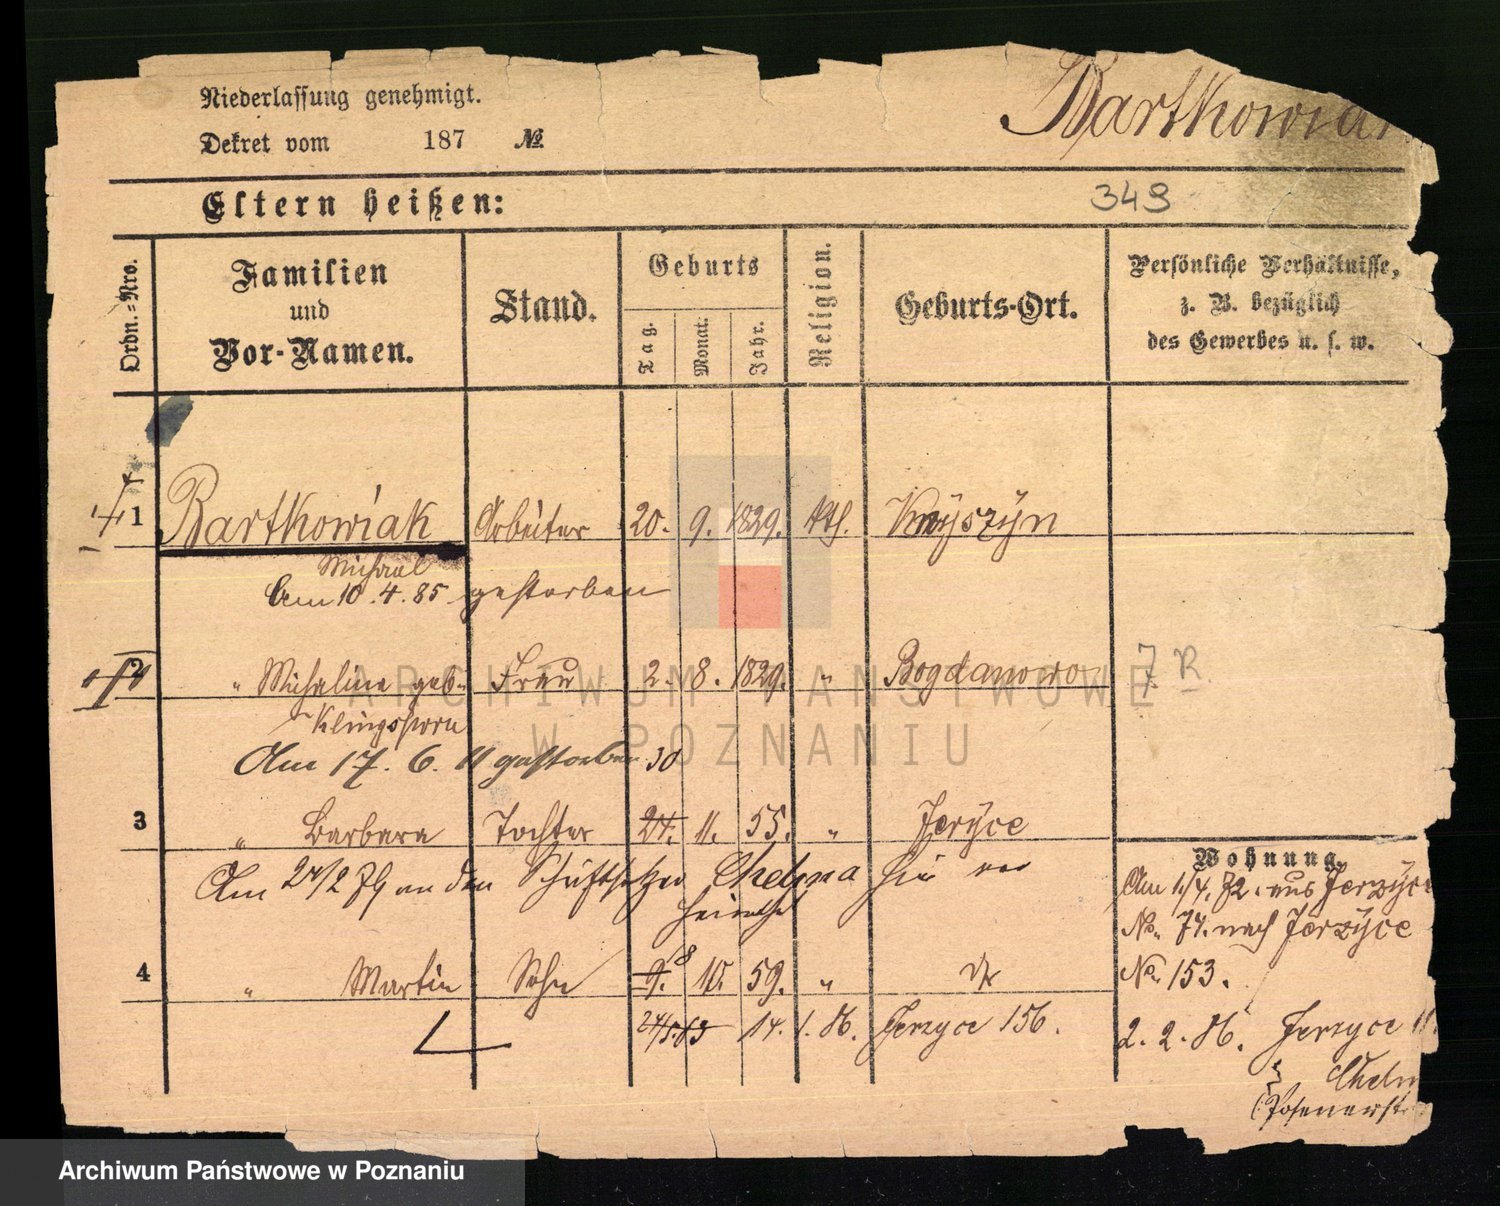 Niederlassung genehmigt.
Bartkowiak
Dekret vom 187 №
Eltern heißen:
349
Ordn.-Nro.
Familien
und
Vor-Namen.
Stand.
Geburts
Tag.
Monat.
Jahr.
Religion.
Geburts-Ort.
Persönliche Verhältnisse,
z. B. bezüglich
des Gewerbes u. s. w.
1 Bartkowiak Arbeiter 20. 9. 1829. kth.
Michael
Am 10.4.85 gestorben
2 " Michaline geb. Frau 2. 8. 1829. " Bogdanowo
7 R.
Klingsporn
Am 17. 6. 11 gestorben
30
3 " Barbara Tochter 24. 11. 55. " Jeryce
Am 24/2 79 an den Schriftsetzer Chelmna hier ver
heirathet
Wohnung.
Am 1/4. 72. aus Jerzyce
No. 74. nach Jerzyce
No. 153.
8
4 " Martin Sohn 9. 10. 59. " do
24/5.63 14. 1. 86. Jerzyce 156.
2. 2. 86. Jerzyce 11
Chelm
Posenerst
ARCHIWUM PAŃSTWOWE
W POZNANIU
Archiwum Państwowe w Poznaniu